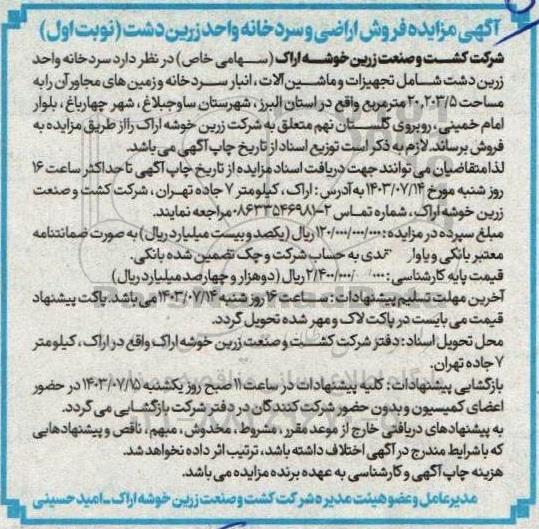 آگهی مزایده فروش اراضی و سردخانه واحد زرین دشت (نوبت اول)
شرکت کشت و صنعت زرین خوشه اراک (سهامی خاص) در نظر دارد سردخانه واحد
زرین دشت شامل تجهیزات و ماشین آلات، انبار سردخانه و زمین های مجاور آن را به
مساحت ۲۰,۲۰۳/۵ مترمربع واقع در استان البرز، شهرستان ساوجبلاغ، شهر چهارباغ، بلوار
امام خمینی، روبروی گلستان نهم متعلق به شرکت زرین خوشه اراک را از طریق مزایده به
فروش برساند. لازم به ذکر است توزیع اسناد از تاریخ چاپ آگهی می باشد.
لذا متقاضیان می توانند جهت دریافت اسناد مزایده از تاریخ چاپ آگهی تا حداکثر ساعت ۱۶
روز شنبه مورخ ۱۴۰۳/۰۷/۱۴ به آدرس: اراک، کیلومتر ۷ جاده تهران، شرکت کشت و صنعت
زرین خوشه اراک، شماره تماس ۲-۰۸۶۳۳۵۴۶۹۸۱ مراجعه نمایند.
مبلغ سپرده در مزایده: ۱۲۰/۰۰۰/۰۰۰/۰۰۰ ریال (یکصد و بیست میلیارد ریال) به صورت ضمانتنامه
معتبر بانکی و یا واریز نقدی به حساب شرکت و چک تضمین شده بانکی.
قیمت پایه کارشناسی: ۲/۴۰۰/۰۰۰/۰۰۰/۰۰۰ ریال (دو هزار و چهارصد میلیارد ریال)
آخرین مهلت تسلیم پیشنهادات: ساعت ۱۶ روز شنبه ۱۴۰۳/۰۷/۱۴ می باشد. پاکت پیشنهاد
قیمت می بایست در پاکت لاک و مهر شده تحویل گردد.
محل تحویل اسناد: دفتر شرکت کشت و صنعت زرین خوشه اراک واقع در اراک، کیلومتر
۷ جاده تهران.
بازگشایی پیشنهادات: کلیه پیشنهادات در ساعت ۱۱ صبح روز یکشنبه ۱۴۰۳/۰۷/۱۵ در حضور
اعضای کمیسیون و بدون حضور شرکت کنندگان در دفتر شرکت بازگشایی می گردد.
به پیشنهادهای دریافتی خارج از موعد مقرر، مشروط، مخدوش، مبهم، ناقص و پیشنهادهایی
که با شرایط مندرج در آگهی اختلاف داشته باشد، ترتیب اثر داده نخواهد شد.
هزینه چاپ آگهی و کارشناسی به عهده برنده مزایده می باشد.
مدیرعامل و عضو هیئت مدیره شرکت کشت و صنعت زرین خوشه اراک - امید حسینی